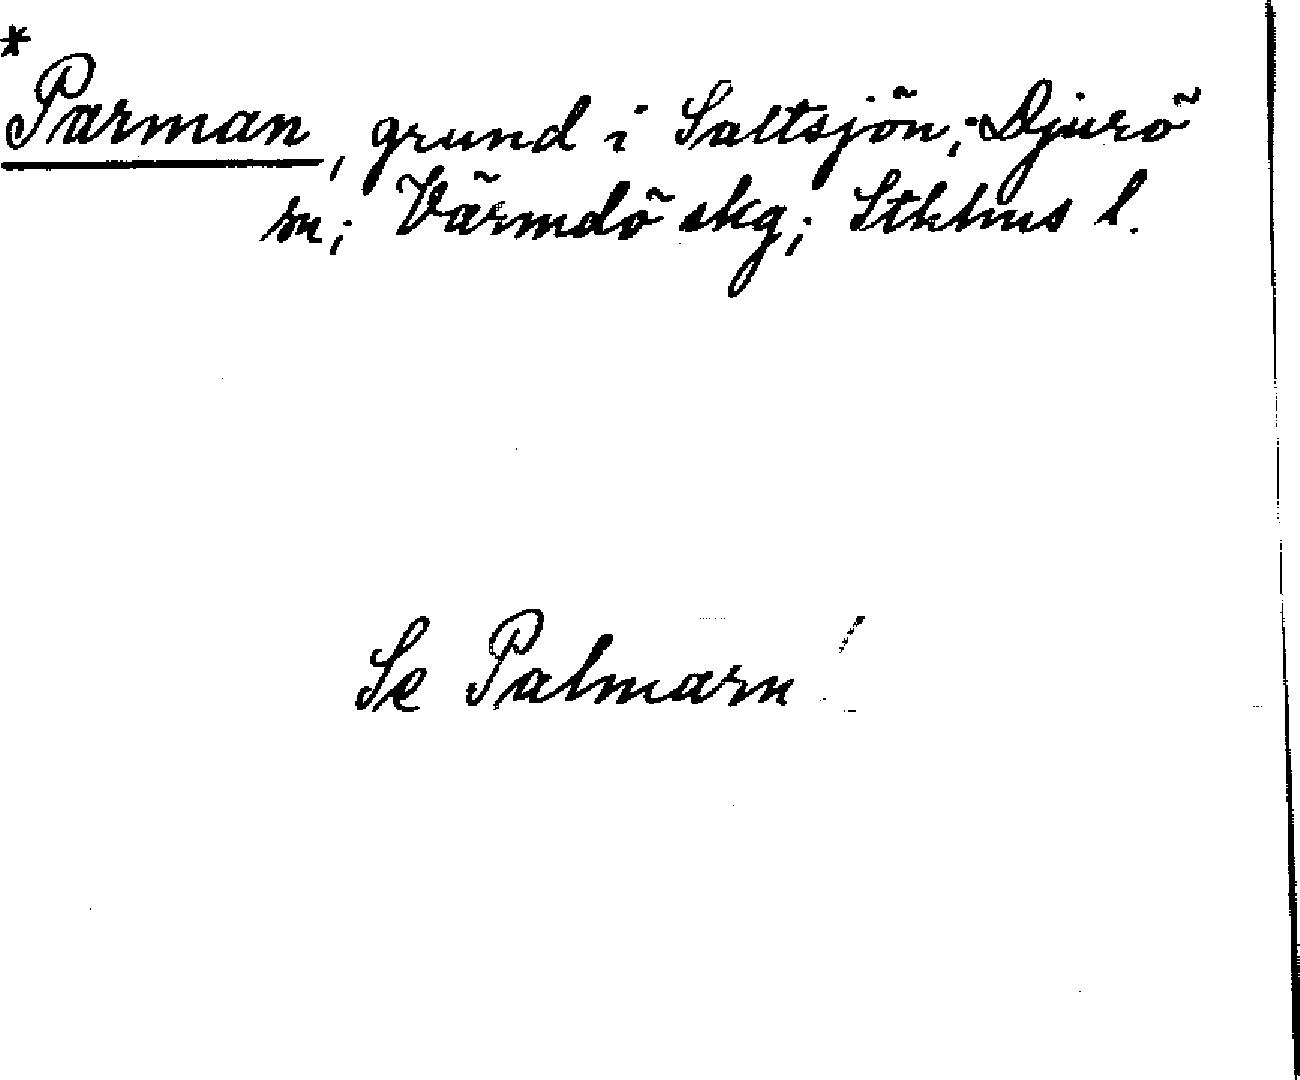 *
Parman, grund i Saltsjön; Djurö
sn; Värmdö skg; Sthlms l.
Se Palmarn!